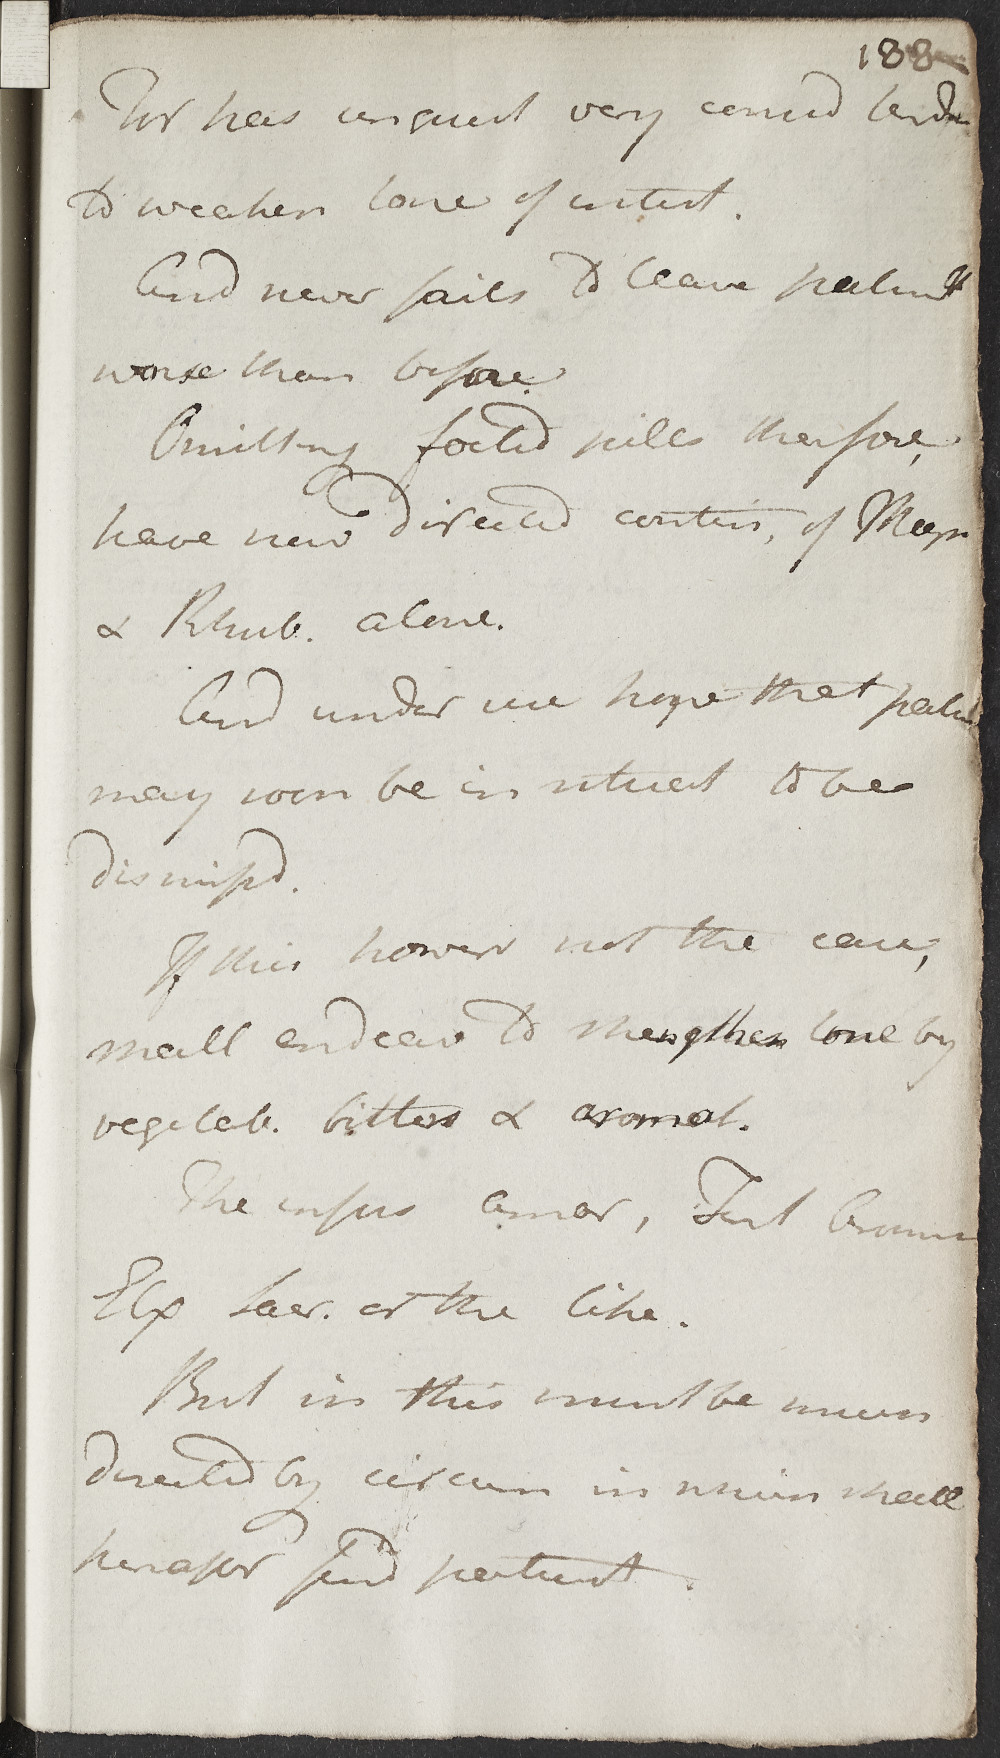 188
For has unquest very consid tend
to weaken tone of intest.
And never fails to leave patient
worse than before.
Omitting foetid pills therefore,
have now directed contin, of Magn
& Rhub. alone.
And under use hope that patient
may soon be in situat to be
dismissd.
If this howevr not the case,
shall endeav to strengthen tone by
vegetab. bitters & aromat.
The infus amar, Tinct Aromat
Elix Sacr. or the like.
But in this must be much
directed by circum in which shall
hereaftr find patient.